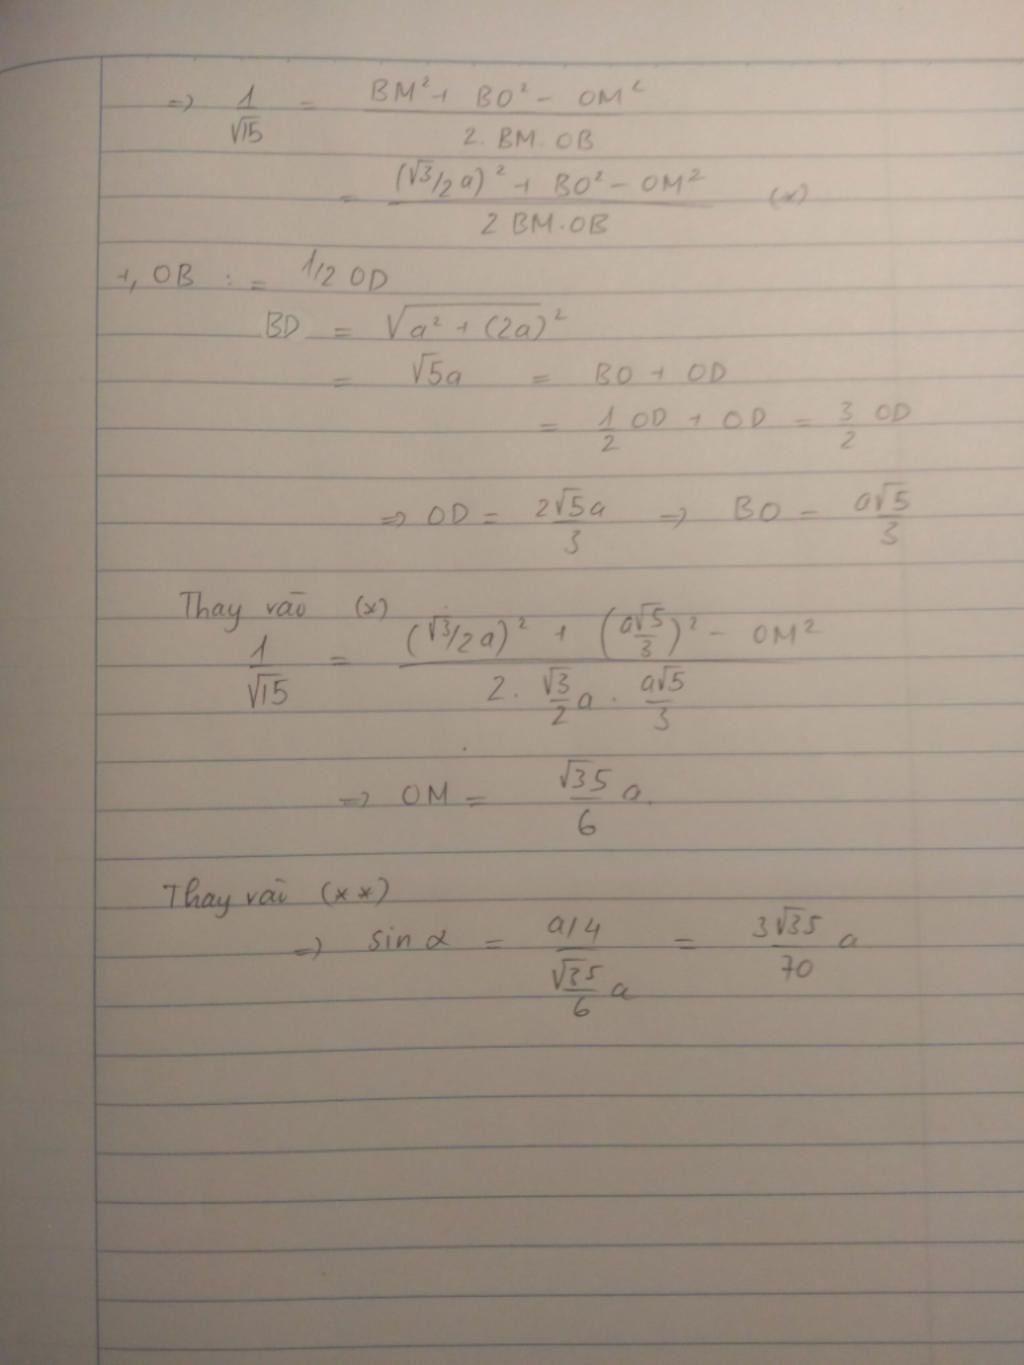 => 1/√15 = (BM² + BO² - OM²)/(2. BM. OB)
= ((√3/2 a)² + BO² - OM²)/(2 BM.OB) (x)
+, OB : = 1/2 OD
BD = √(a² + (2a)²)
= √5a = BO + OD
= 1/2 OD + OD = 3/2 OD
=> OD = 2√5a/3 => BO = a√5/3
Thay vào (x)
1/√15 = ((√3/2 a)² + (a√5/3)² - OM²)/(2. √3/2 a . a√5/3)
=> OM = √35/6 a.
Thay vào (x x)
=> sin α = (a/4)/(√35/6 a) = 3√35/70 a